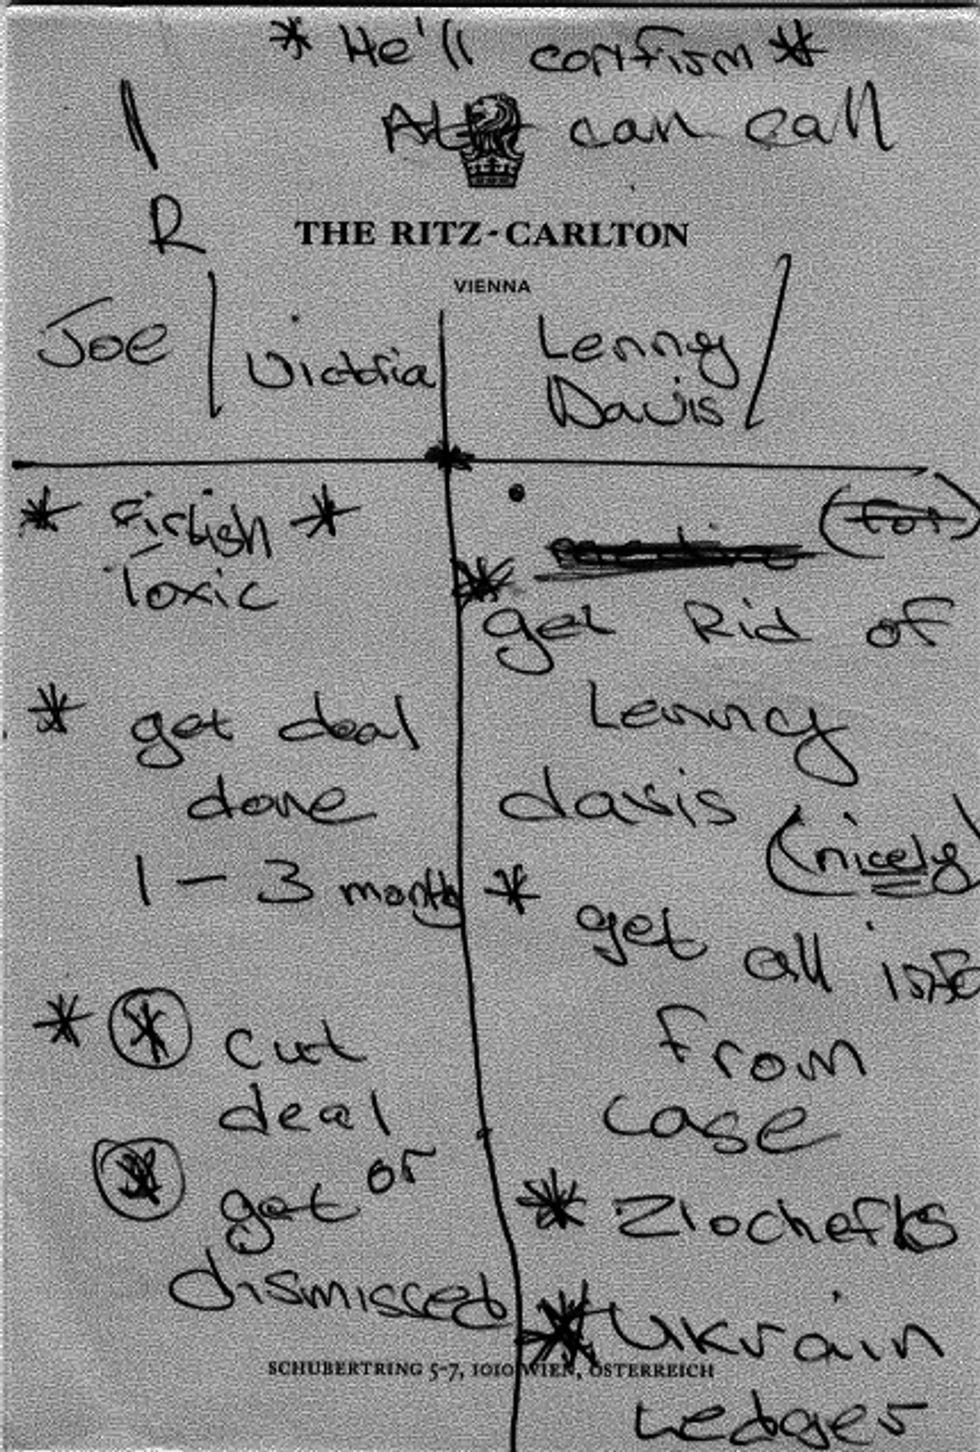 * He'll confirm *
can call
R
THE RITZ-CARLTON
VIENNA
Joe / Victoria
Lenny
Davis /
* Firtish *
Toxic
* get deal
done
1 - 3 month
* * cut
deal
or
* get
dismissed
(for)
* get Rid of
Lenny
davis (nicely)
* get all info
from
case
* Zlochefks
* Ukrain
Ledger
SCHUBERTRING 5-7, 1010 WIEN, ÖSTERREICH